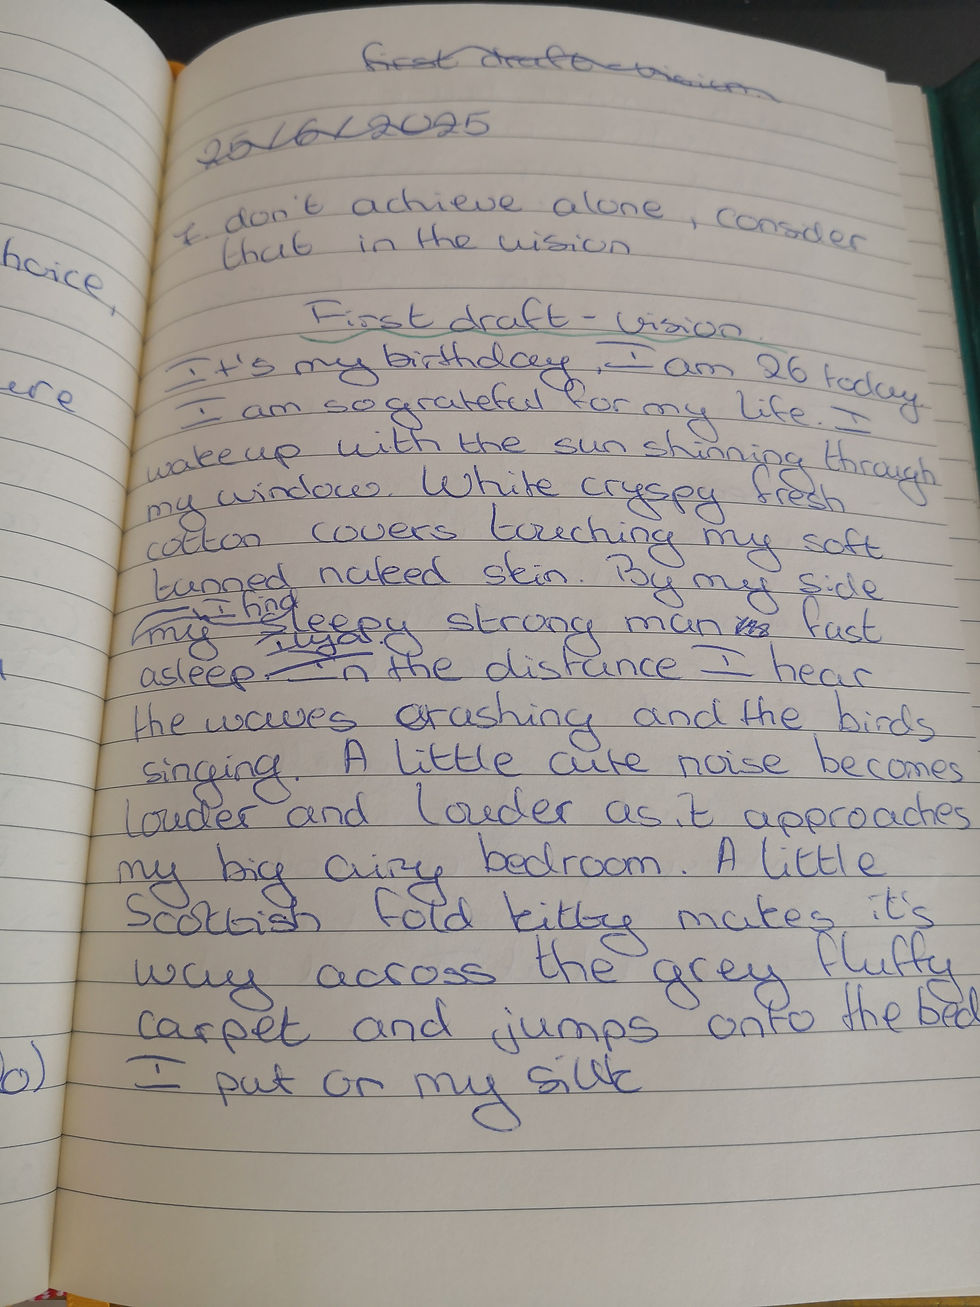 first draft - vision
25/6/2025
hoice,
ere
I don't achieve alone, consider
that in the vision
First draft - vision.
It's my birthday, I am 26 today
I am so grateful for my life. I
wakeup with the sun shinning through
my window. White cryspy fresh
cotton covers touching my soft
tanned naked skin. By my side
I find
my sleepy strong man fast
asleep. In the distance I hear
the waves crashing and the birds
singing. A little cute noise becomes
louder and louder as it approaches
my big airy bedroom. A little
Scottish fold kitty makes it's
way across the grey fluffy
carpet and jumps onto the bed
o)
I put on my silk